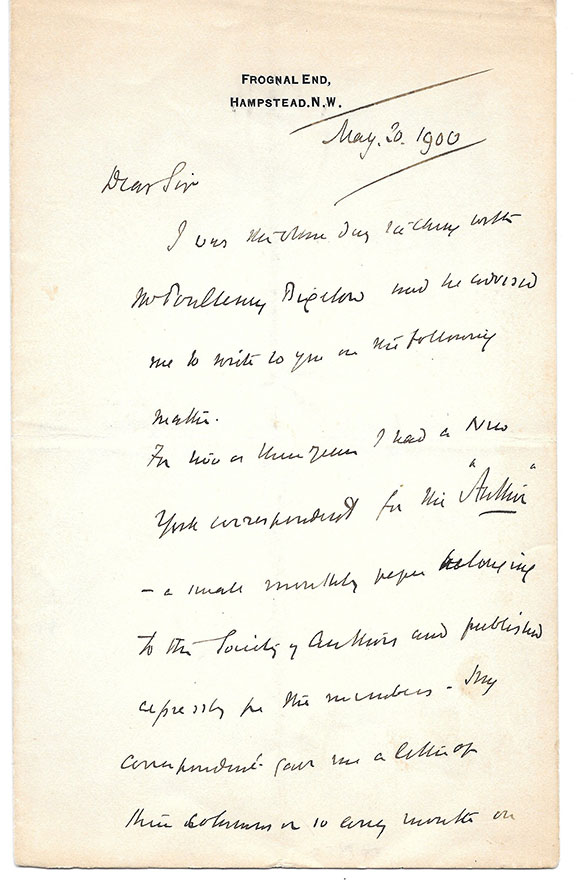 FROGNAL END,
HAMPSTEAD. N.W.
May. 20. 1900
Dear Sir
I was the other day talking with
Mr Poultney Bigelow and he advised
me to write to you on the following
matter.
For two or three years I had a New
York correspondent for the "Author"
- a small monthly paper belonging
to the Society of Authors and published
expressly for the members - My
correspondent gave me a letter of
three columns or so every month on